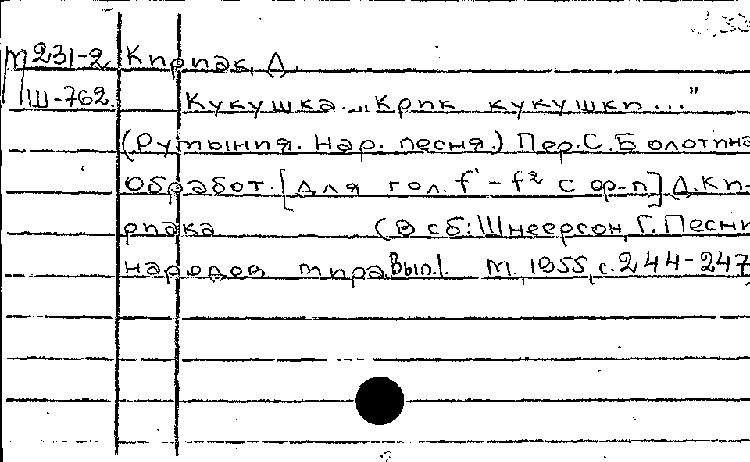 М231-2 Кирпак, Д.
Ш-762. Кукушка. „Крик кукушки..."
(Румыния. Нар. песня.) Пер. С. Болотина
Обработ. [для гол. f¹ - f² с фр-п] Д. Ки-
рпака (В сб: Шнеерсон, Г. Песни
народов мира. Вып. I. М, 1955, с. 244-247